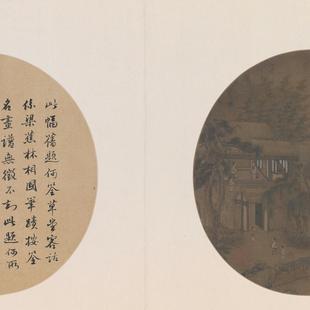 此幅舊題何筌草堂客話
係梁蕉林相國筆蹟按筌
名畫譜無徵不知此題何所